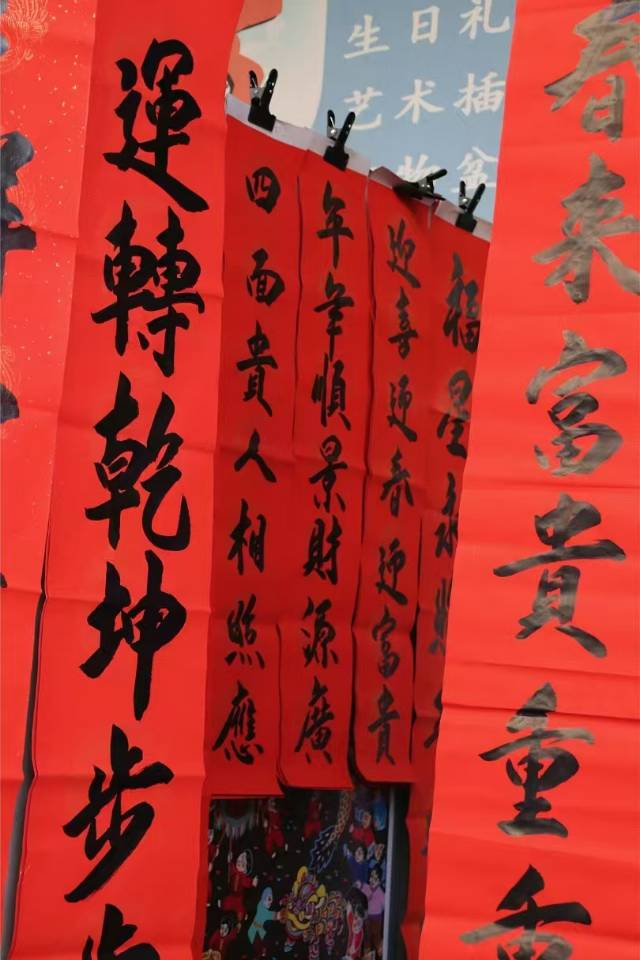 生日礼
艺术插
物盆
運轉乾坤步步
四面貴人相照應
年年順景財源廣
迎喜迎春迎富貴
福星永照
春来富貴重重